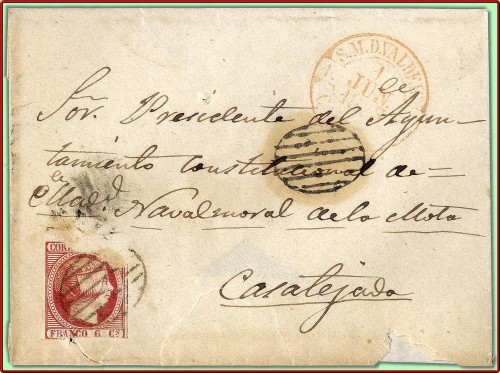 S.M.D.VALDE
1
JUN
de
Sőr. Presidente del Ayun-
tamiento constitucional de=
Navalmoral de la Mata
Casatejada
FRANCO 6 Cs